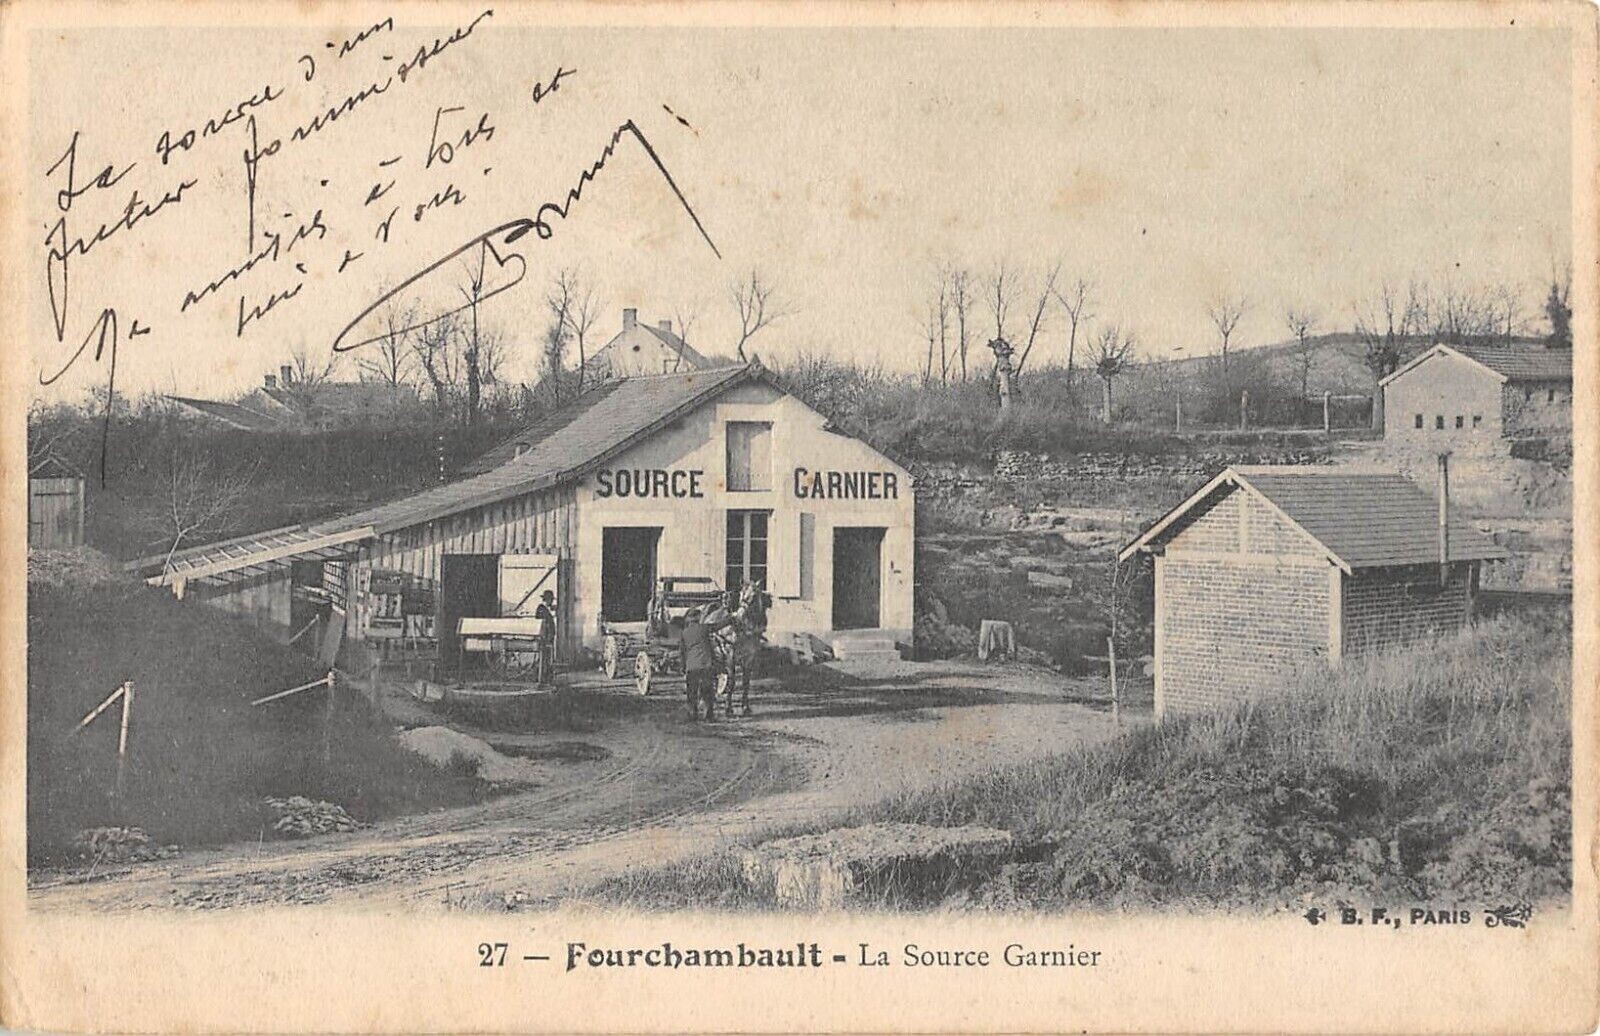 La source d'un
futur fournisseur
Mes amitiés à tous et
à vous.
SOURCE GARNIER
B. F., PARIS
27 — Fourchambault - La Source Garnier